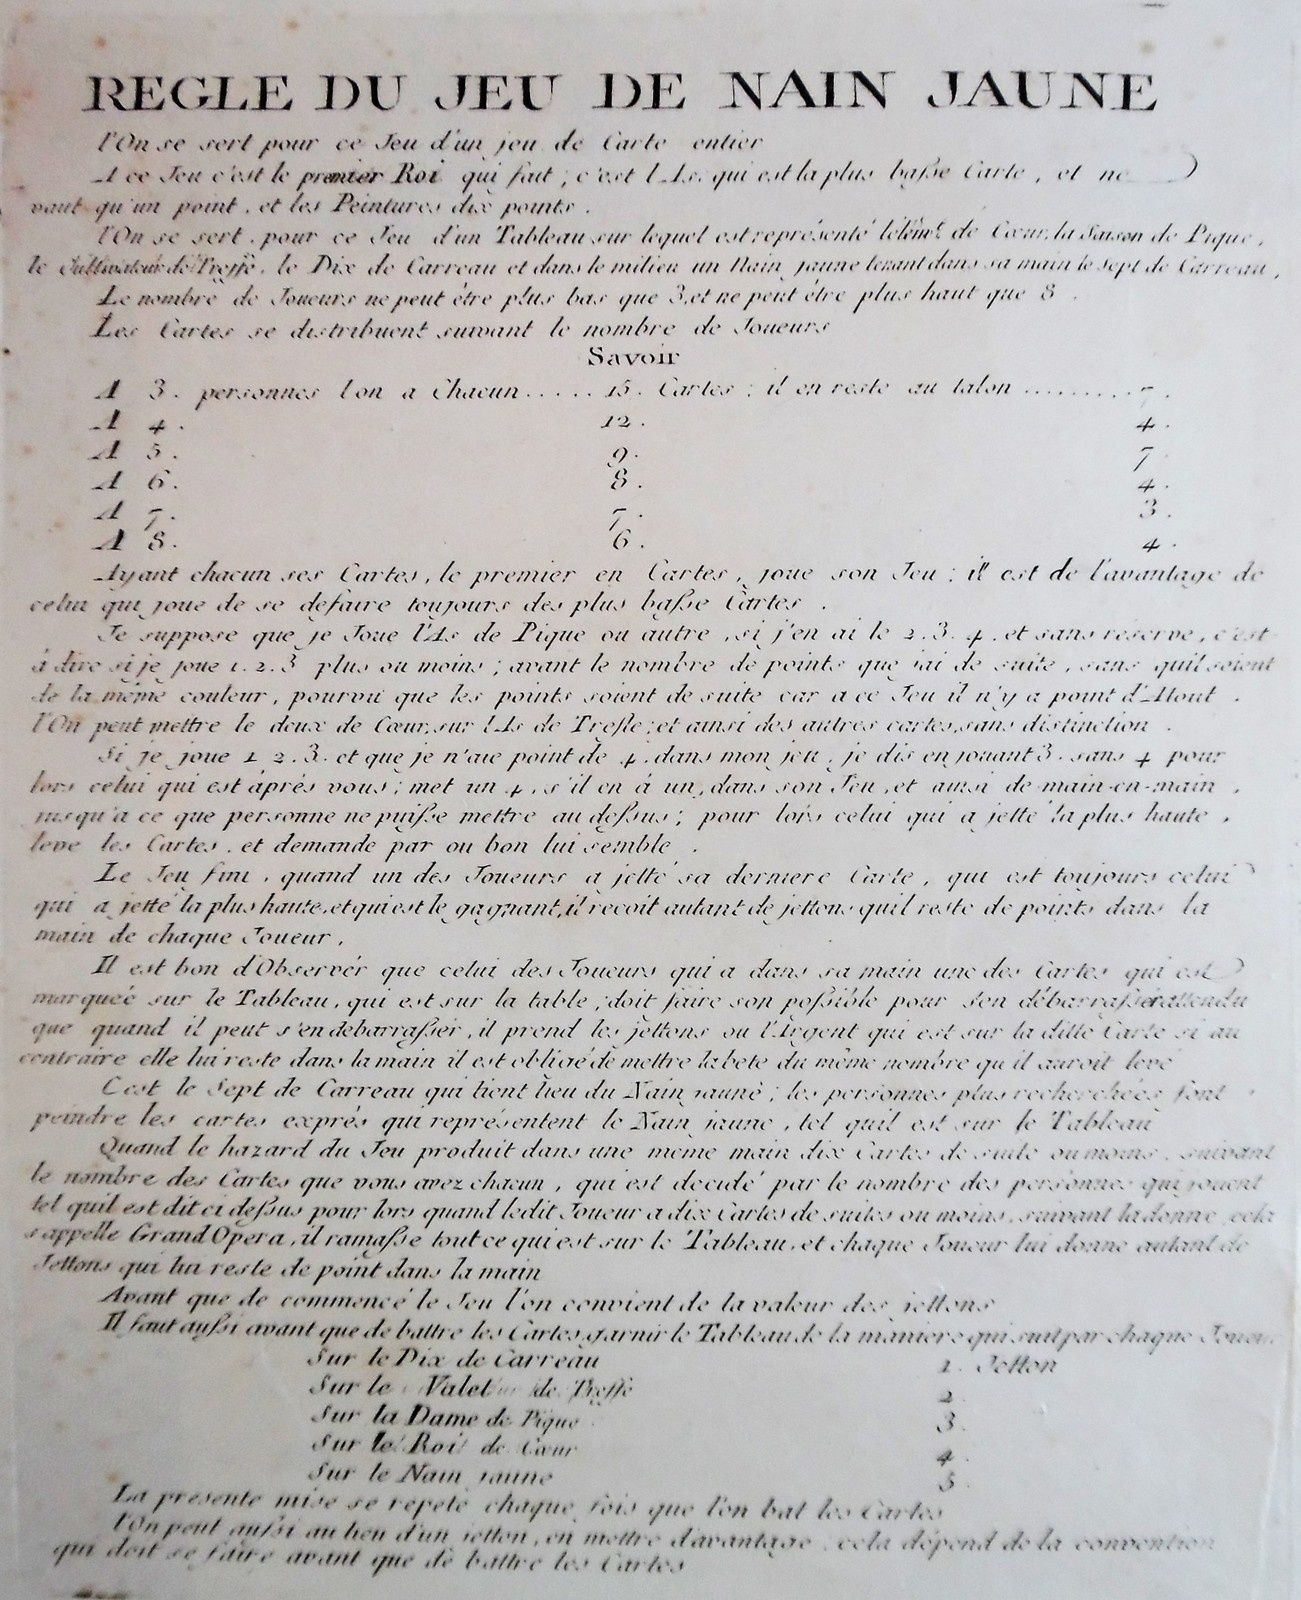 REGLE DU JEU DE NAIN JAUNE
l'On se sert pour ce Jeu d'un jeu de Carte entier
A ce Jeu c'est le premier Roi qui fait ; c'est l'As. qui est la plus baſse Carte , et ne
vaut qu'un point . et les Peintures dix points .
l'On se sert . pour ce Jeu d'un Tableau sur lequel est représenté de Cœur, la Saison de Pique ,
le de Treffe , le Dix de Carreau et dans le milieu un Nain jaune tenant dans sa main le sept de Carreau ,
Le nombre de Joueurs ne peut être plus bas que 3, et ne peut être plus haut que 8 .
Les Cartes se distribuent suivant le nombre de Joueurs
Savoir
A 3 . personnes l'on a Chacun ..... 15 . Cartes ; il en reste au talon ......... 7 .
A 4 . 12 . 4 .
A 5 . 9 . 7
A 6 . 8 . 4 .
A 7 . 7 . 3 .
A 8 . 6 . 4 .
Ayant chacun ses Cartes , le premier en Cartes , joue son Jeu ; il est de l'avantage de
celui qui joue de se defaire toujours des plus baſse Cartes .
Je suppose que je Joue l'As de Pique ou autre , si j'en ai le 2 . 3 . 4 . et sans reserve , c'est
à dire si je joue 1 . 2 . 3 plus ou moins ; avant le nombre de points que jai de suite , sans quil soient
de la même couleur , pourvu que les points soient de suite car a ce Jeu il n'y a point d'Atout .
l'On peut mettre le deux de Cœur, sur l'As de Trefle ; et ainsi des autres cartes, sans distinction .
Si je joue 1 2 . 3 . et que je n'aie point de 4 , dans mon jeu , je dis en jouant 3 . sans 4 pour
lors celui qui est áprés vous ; met un 4 , s'il en à un, dans son Jeu , et ausi de main-en-main ,
jusqu'a ce que personne ne puiſse mettre au deſsus ; pour lors celui qui a jetté la plus haute ,
leve les Cartes . et demande par ou bon lui semble .
Le Jeu fini , quand un des Joueurs a jetté sa derniere Carte , qui est toujours celui
qui a jetté la plus haute, et qui est le gagnant, il recoit autant de jettons quil reste de points dans la
main de chaque Joueur .
Il est bon d'Observér que celui des Joueurs qui a dans sa main une des Cartes qui est
marqueé sur le Tableau , qui est sur la table ; doit faire son poſsible pour s'en débarraſsér attendu
que quand il peut s'en debarraſsér , il prend les jettons ou l'Argent qui est sur la ditte Carte si au
contraire elle lui reste dans la main il est obligé de mettre la bete du même nombre qu il auroit levé
C'est le Sept de Carreau qui tient lieu du Nain jaune ; les personnes plus recherchées font
peindre les cartes exprés qui représentent le Nain jaune , tel quil est sur le Tableau
Quand le hazard du Jeu produit dans une même main dix Cartes de suite ou moins , suivant
le nombre des Cartes que vous avez chacun , qui est decidé par le nombre des personnes qui jouent
tel quil est dit ci deſsus pour lors quand ledit Joueur a dix Cartes de suites ou moins , suivant la donne , cela
s'appelle Grand Opera , il ramaſse tout ce qui est sur le Tableau , et chaque Joueur lui donne autant de
Jettons qui lui reste de point dans la main
Avant que de commencé le Jeu l'on convient de la valeur des jettons
Il faut auſsi avant que de battre les Cartes, garnir le Tableau de la maniere qui suit par chaque Joueur
Sur le Dix de Carreau 1 . Jetton
Sur le Valet de Treffe 2
Sur la Dame de Pique 3 .
Sur le Roi de Cœur 4 .
Sur le Nain jaune 5 .
La presente mise se repete chaque fois que l'on bat les Cartes
l'On peut auſsi au lieu d'un jetton , en mettre d'avantage , cela dépend de la convention
qui doit se faire avant que de battre les Cartes